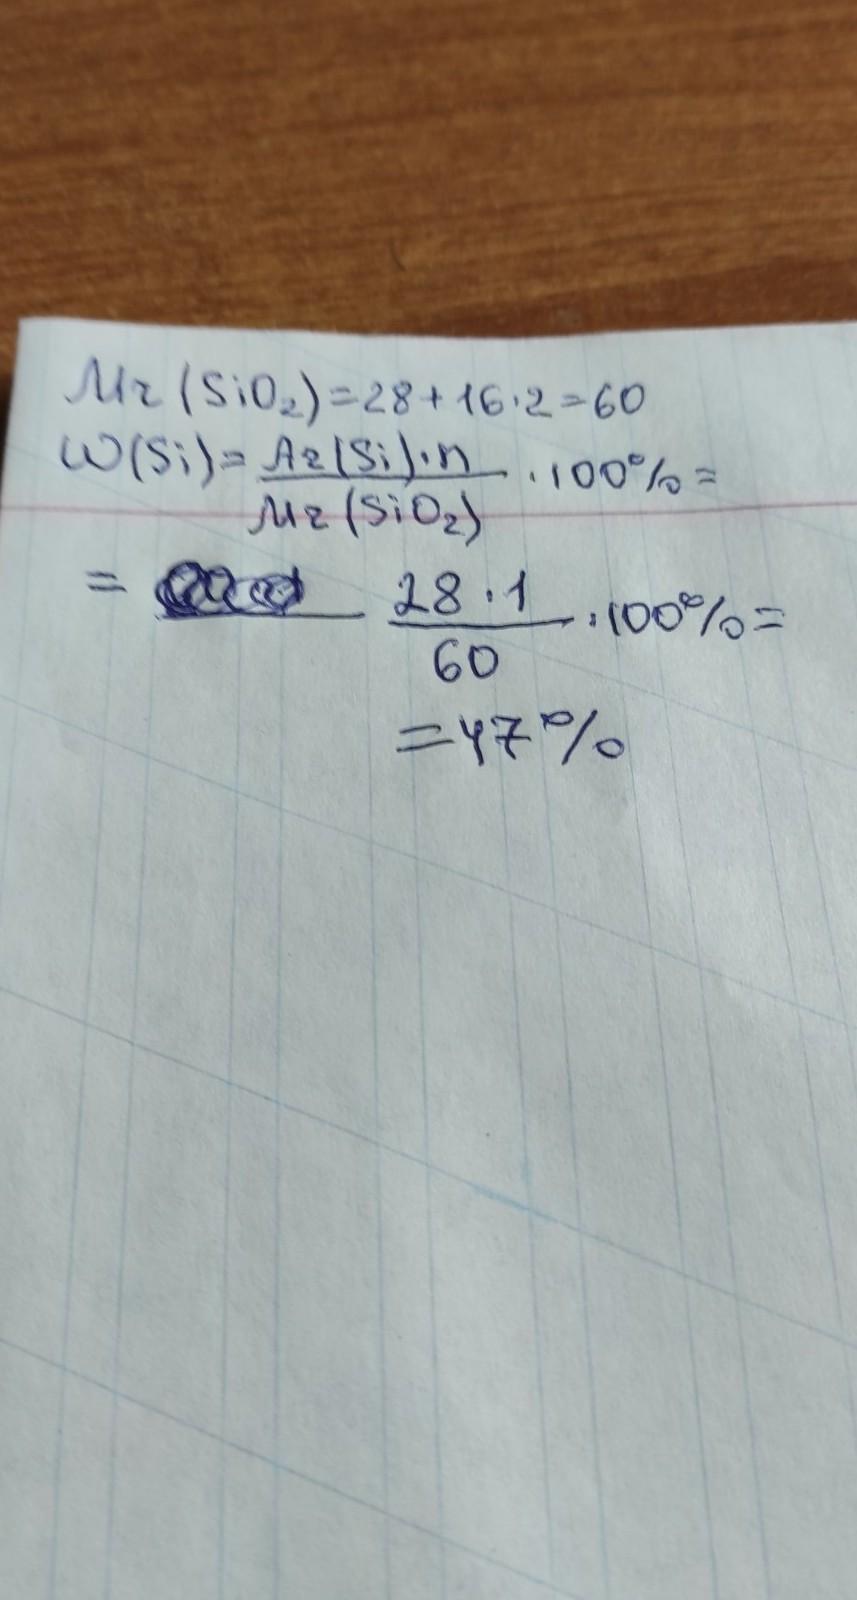 Mr (SiO₂) = 28 + 16 · 2 = 60
W(Si) = Ar(Si) · n / Mr (SiO₂) · 100% =
= 28 · 1 / 60 · 100% =
= 47%